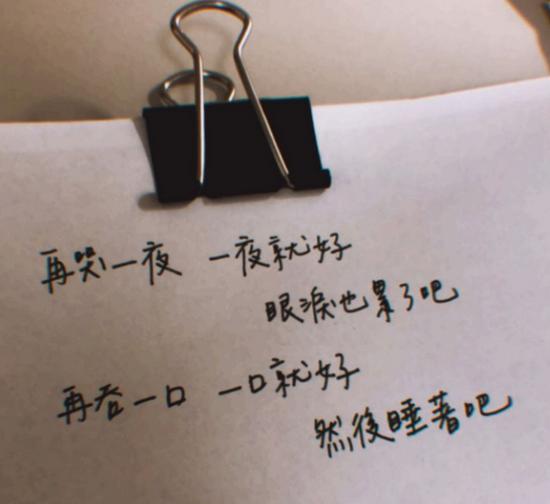 再哭一夜 一夜就好
眼淚也累了吧
再吞一口 一口就好
然後睡著吧